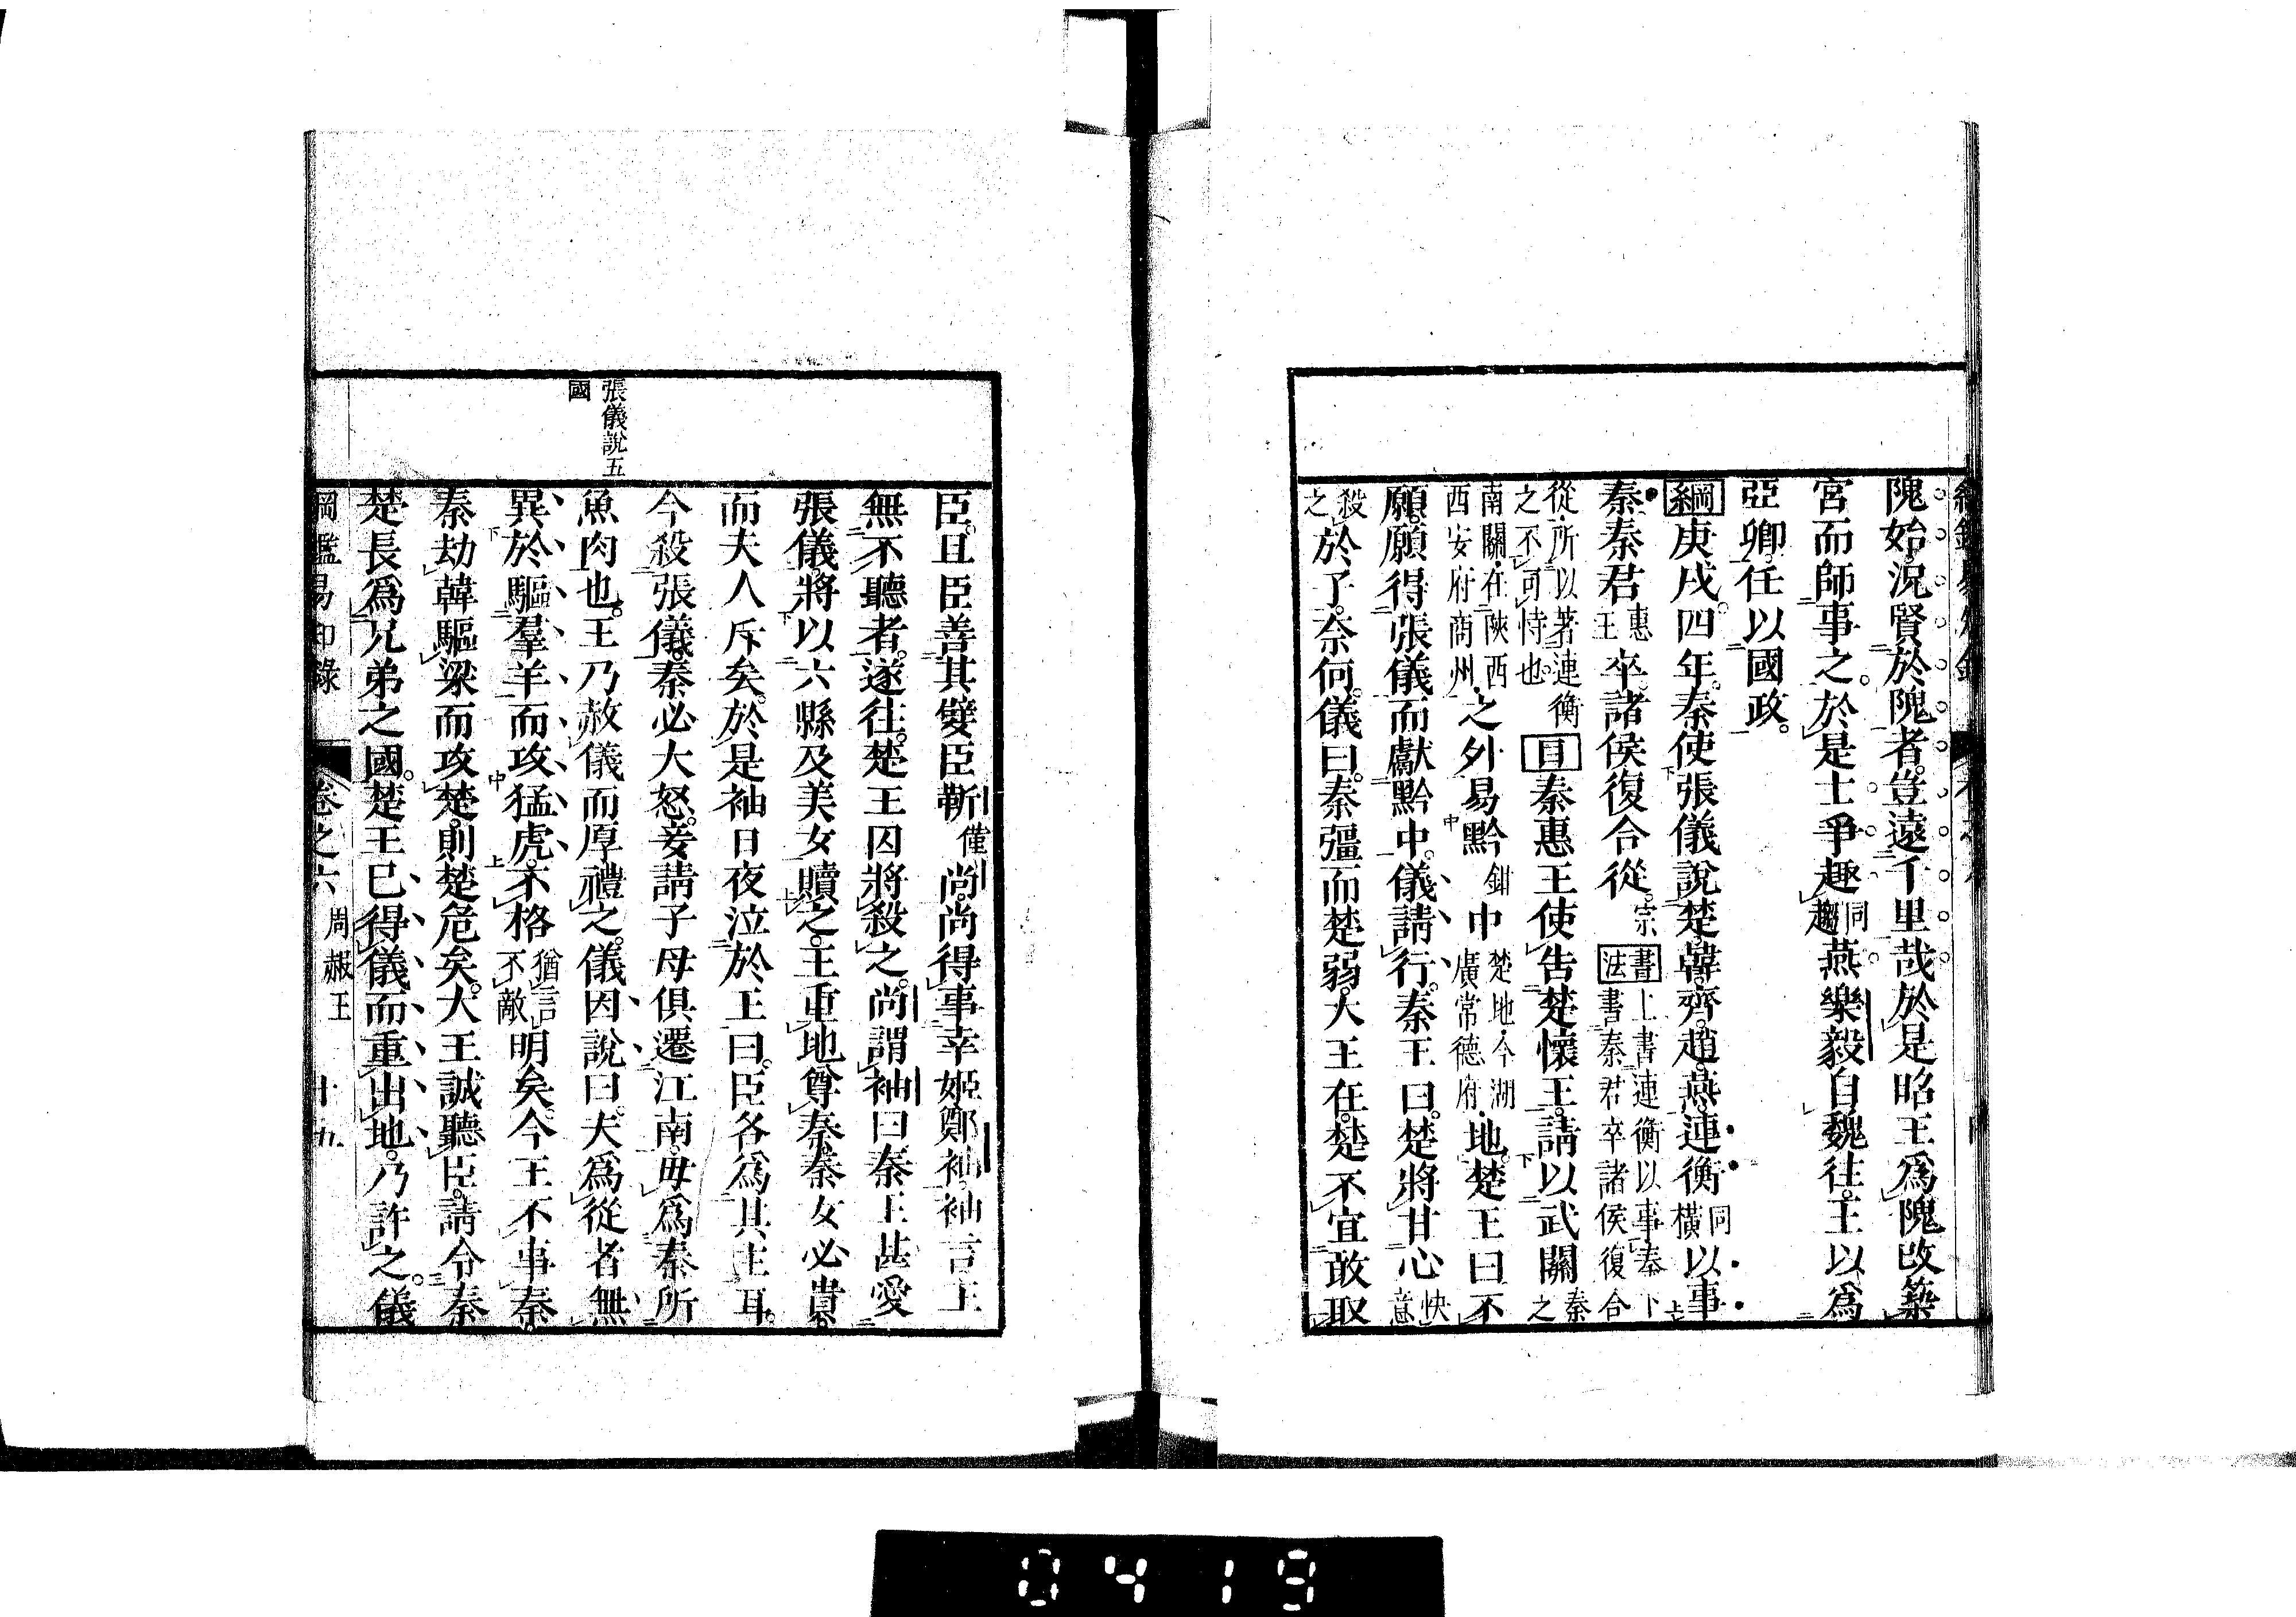 隗始。況賢於隗者。豈遠千里哉。於是昭王爲隗改築
宮而師事之。於是士爭趣同趨燕。樂毅自魏往。王以爲
亞卿。任以國政。
綱庚戌四年。秦使張儀說楚。韓。齊。趙。燕。連衡同橫以事
秦。秦君惠王卒。諸侯復合從。宗書法書上書連衡以事秦下書秦君卒諸侯復合
從。所以著連衡之不可恃也。目秦惠王使告楚懷王。請以武關秦之
南關。在陝西西安府商州。之外易黔鉗中楚地。今湖廣常德府。地。楚王曰不
願。願得張儀而獻黔中。儀請行。秦王曰。楚將甘心快意
殺之於子。奈何。儀曰。秦彊而楚弱。大王在。楚不宜敢取
張儀說五
國
臣。且臣善其嬖臣靳僅尚。尚得事幸姬鄭袖。袖言王
無不聽者。遂往。楚王囚將殺之。尚謂袖曰秦王甚愛
張儀。將以六縣及美女贖之。王重地尊秦。秦女必貴。
而夫人斥矣。於是袖日夜泣於王曰。臣各爲其主耳。
今殺張儀。秦必大怒。妾請子母俱遷江南。毋爲秦所
魚肉也。王乃赦儀而厚禮之。儀因說曰。夫爲從者無
異於驅羣羊而攻猛虎。不格猶言不敵明矣。今王不事秦。
秦劫韓驅梁而攻楚。則楚危矣。大王誠聽臣。請令秦
楚長爲兄弟之國。楚王已得儀而重出地。乃許之。儀
綱鑑易知錄 卷之六 周赧王 十九